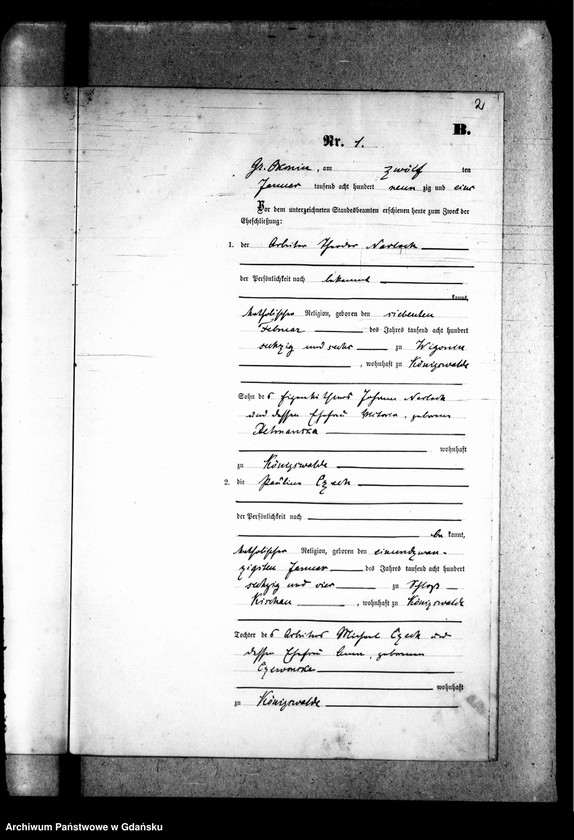 2
B.
Nr. 1.
Gr. Okonin, am zwölf ten
Januar tausend acht hundert neun zig und eins
Vor dem unterzeichneten Standesbeamten erschienen heute zum Zweck der
Eheschließung:
1. der Arbeiter Theodor Narloch
der Persönlichkeit nach bekannt
kannt,
katholischer Religion, geboren den siebenten
Februar des Jahres tausend acht hundert
sechzig und sechs zu Wigonin
, wohnhaft zu Königswalde
Sohn des Eigenthümers Johann Narloch
und dessen Ehefrau Victoria, geborene
wohnhaft
zu Königswalde
2. die Pauline Czech
der Persönlichkeit nach
be kannt,
katholischer Religion, geboren den einundzwan-
zigsten Januar des Jahres tausend acht hundert
sechzig und vier zu Schloß
Kischau, wohnhaft zu Königswalde
Tochter des Arbeiters Michael Czech und
dessen Ehefrau Anna, geborenen
Czerwonka
wohnhaft
zu Königswalde
Archiwum Państwowe w Gdańsku